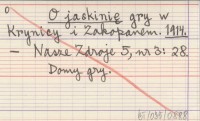 O jaskinię gry w
Krynicy i Zakopanem. 1914.
— Nasze Zdroje 5, nr 3: 28.
Domy gry.